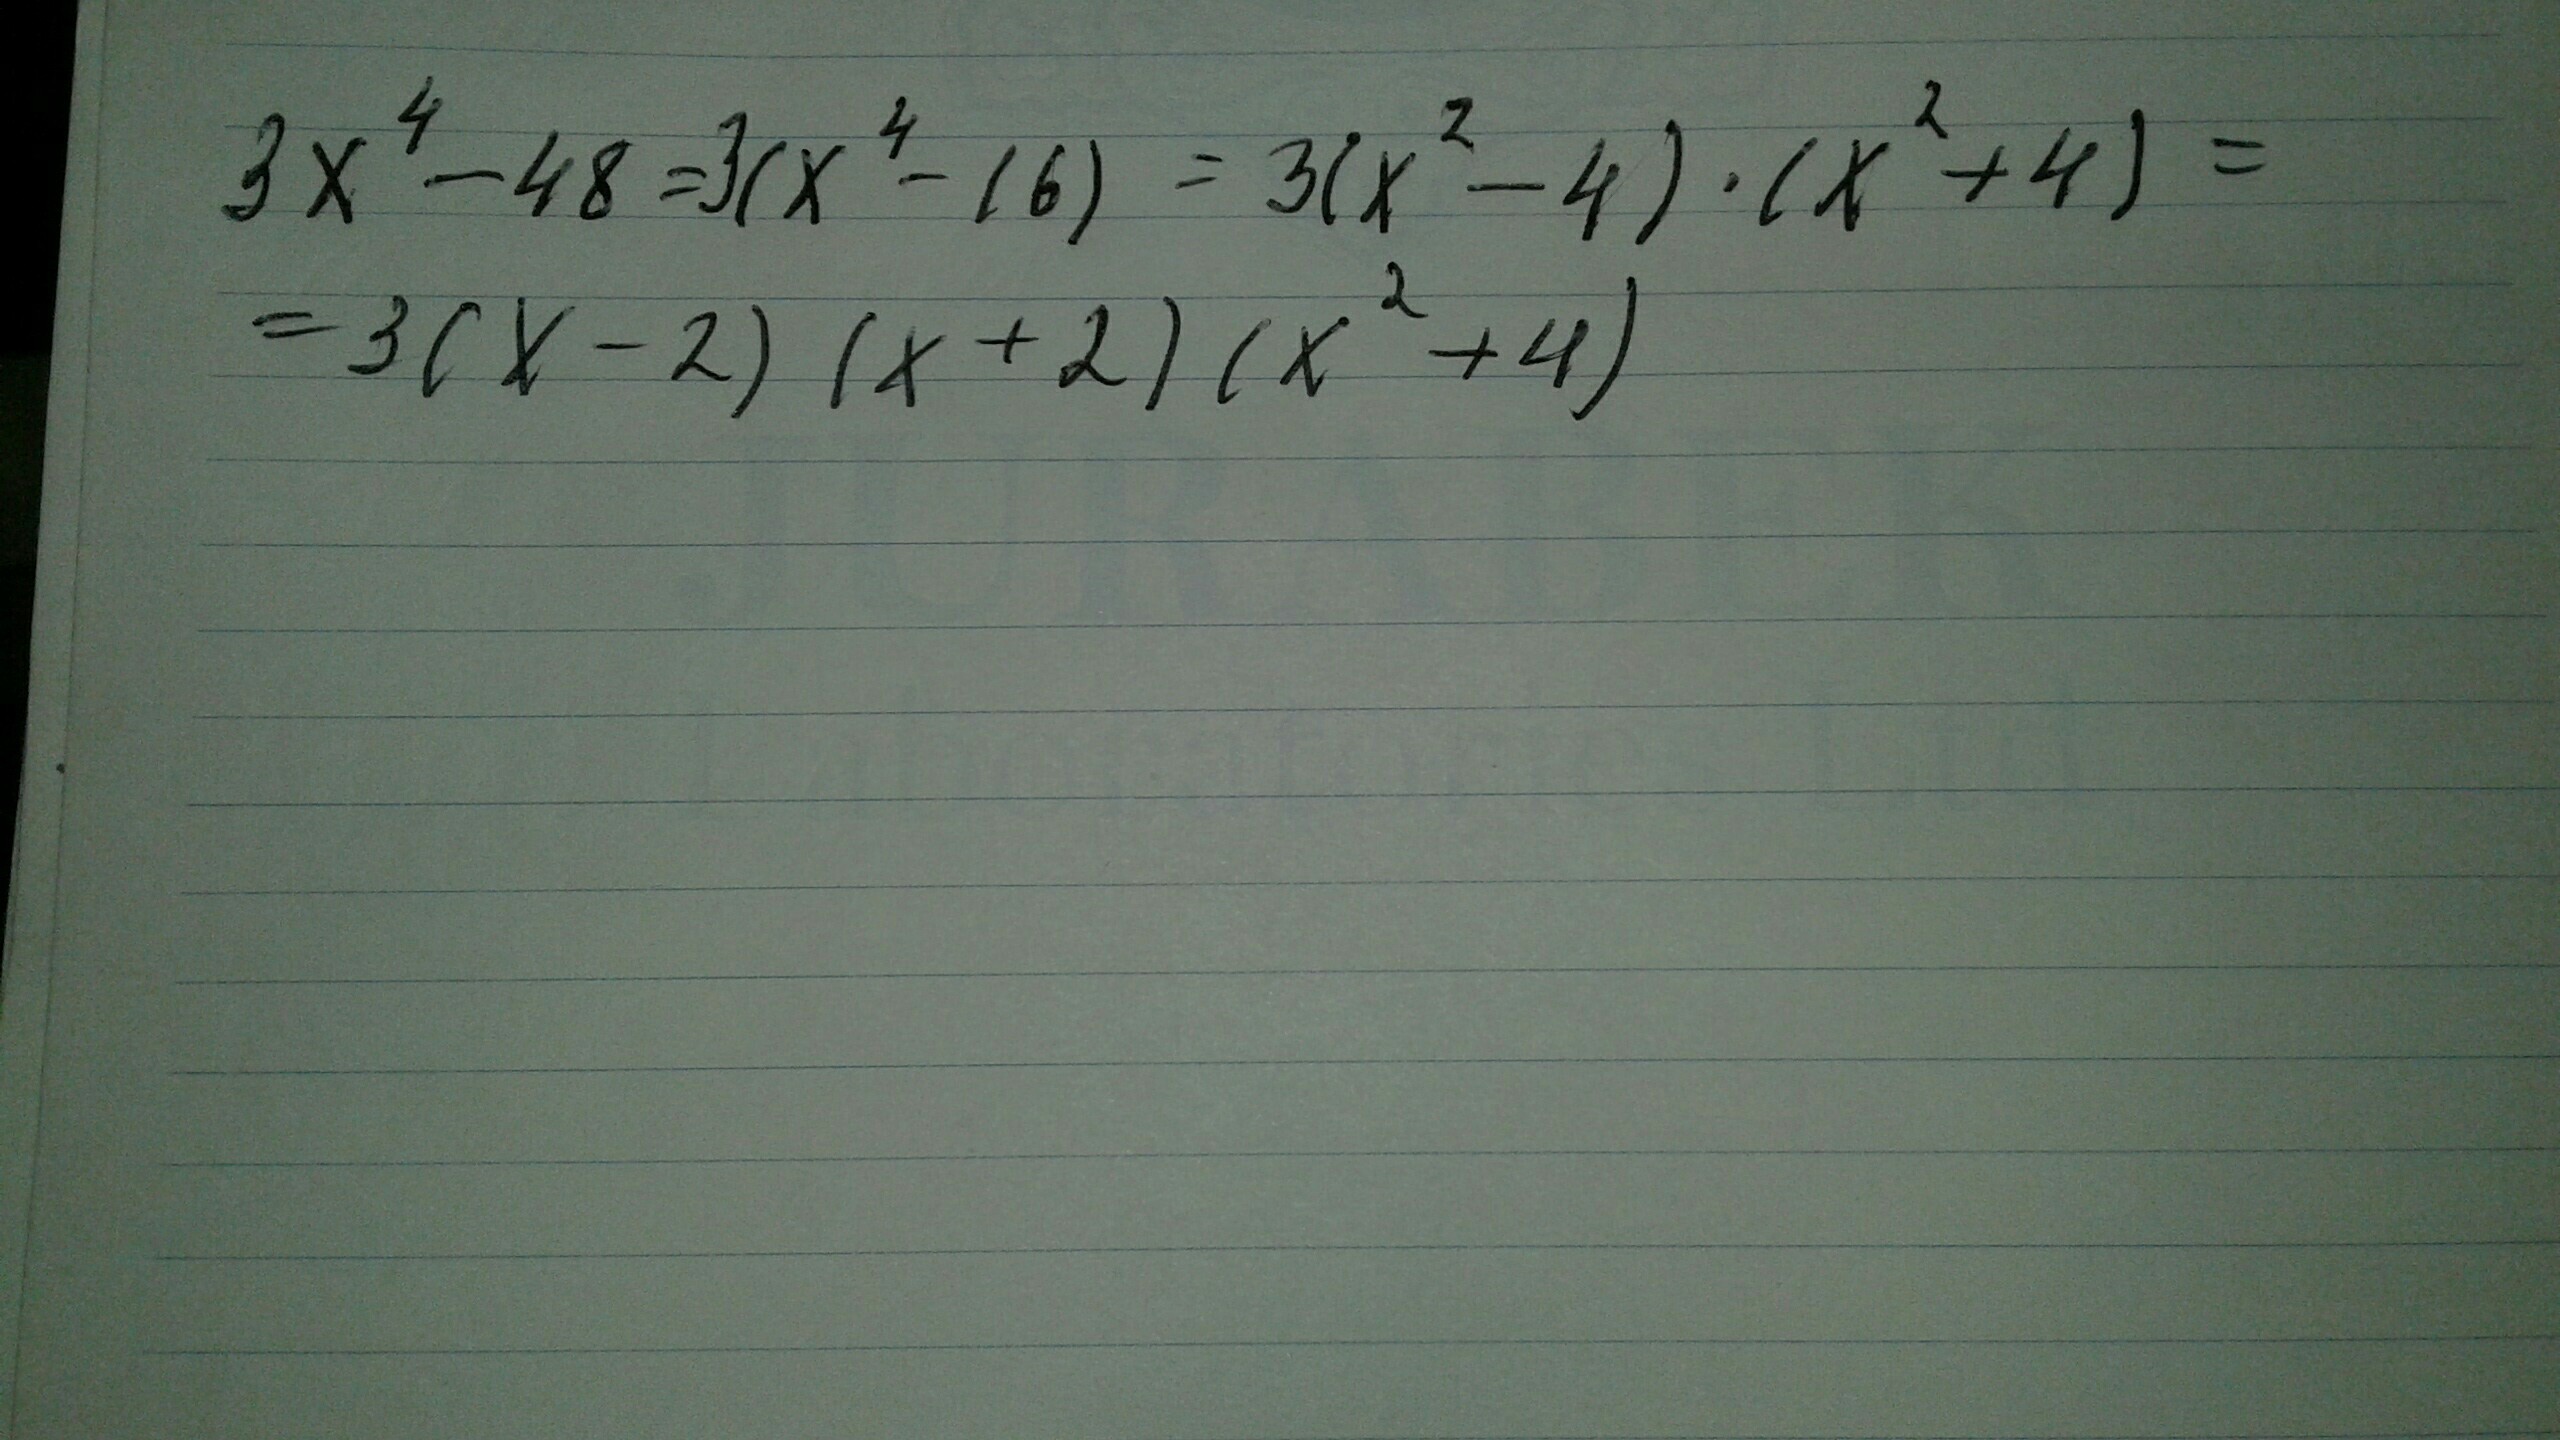 3x⁴-48=3(x⁴-16) = 3(x²-4)·(x²+4) =
=3(x-2)(x+2)(x²+4)